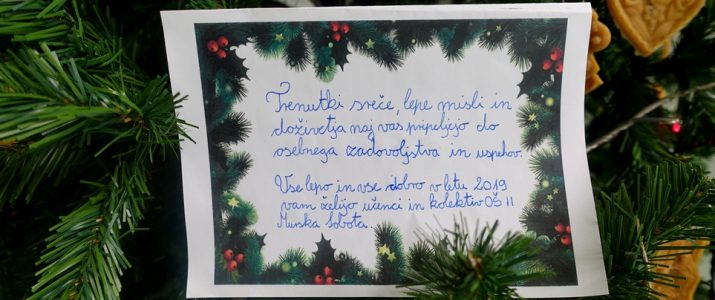 Trenutki sreče, lepe misli in
doživetja naj vas pripeljejo do
osebnega zadovoljstva in uspehov.
Vse lepo in vse dobro v letu 2019
vam želijo učenci in kolektiv OŠ II
Murska Sobota.